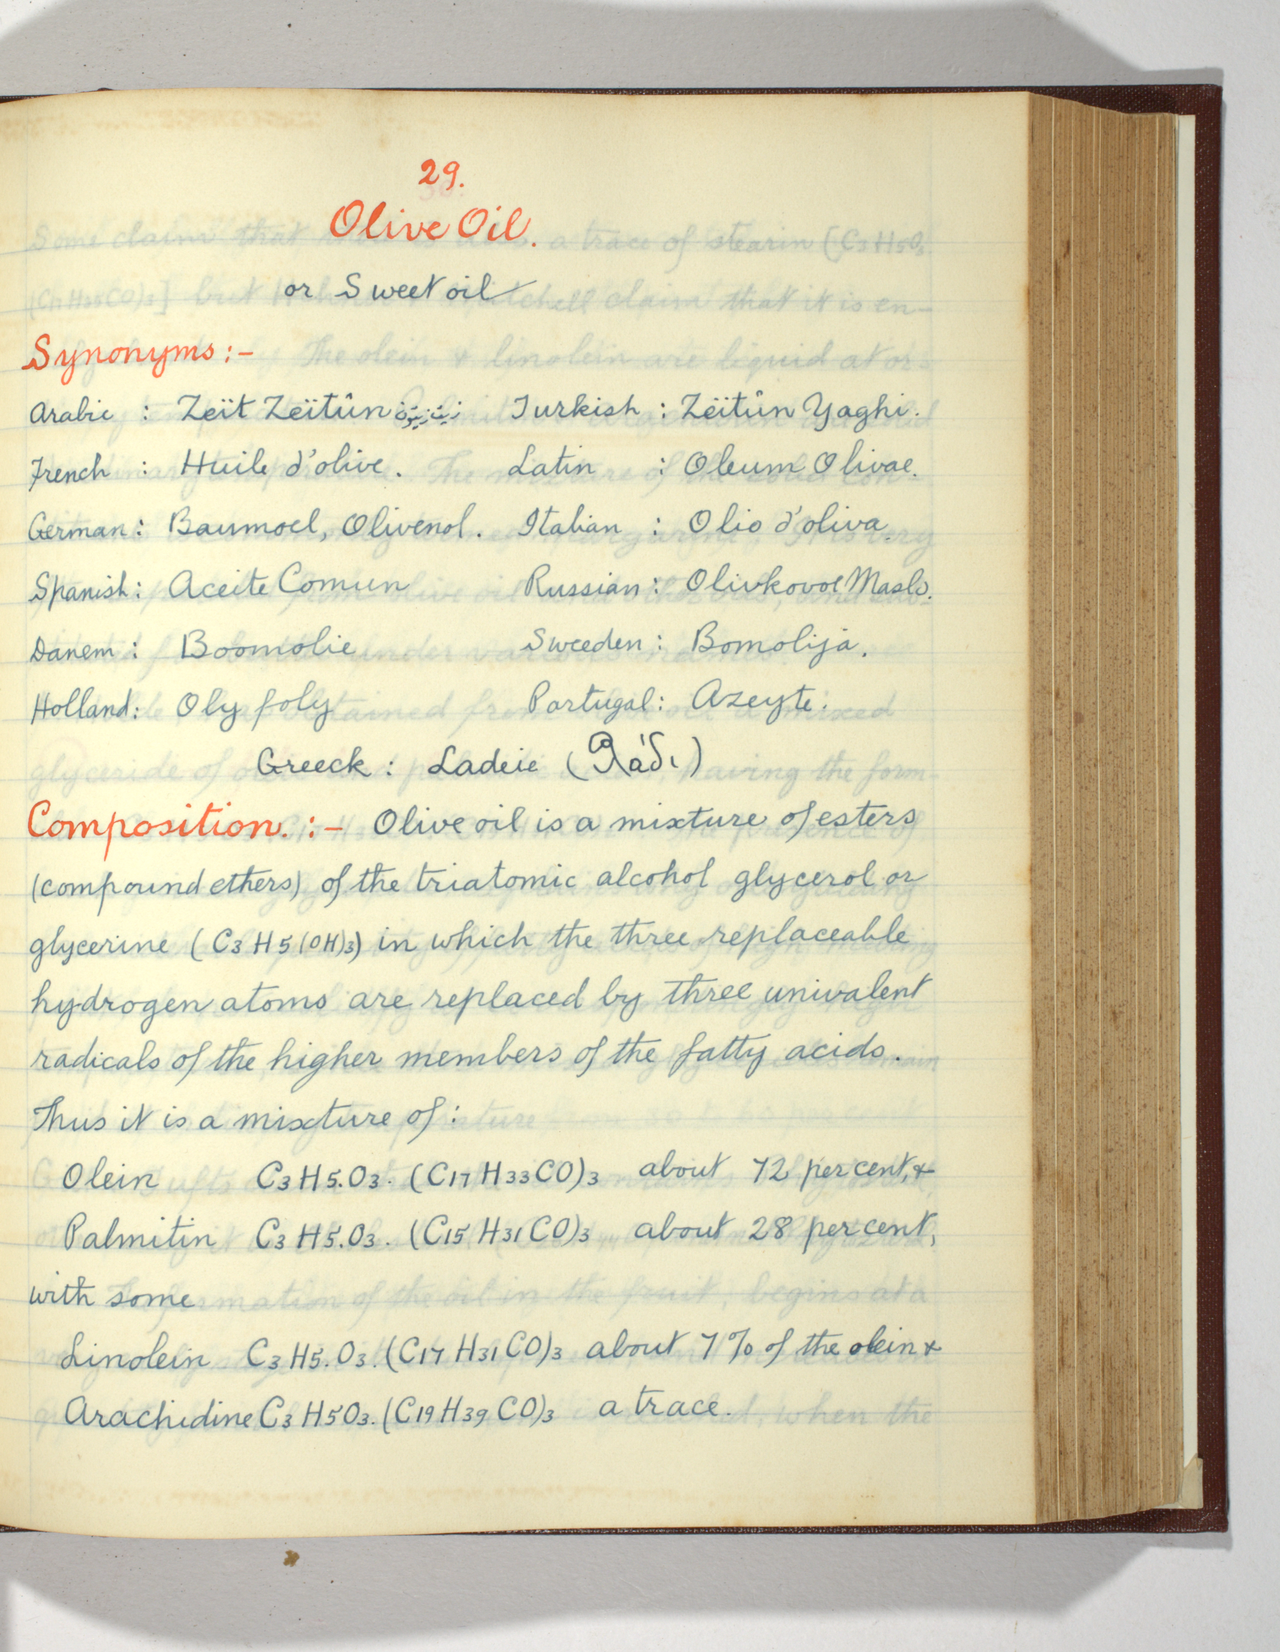 29.
Olive Oil.
or Sweet oil
Synonyms :-
Arabic : Zeït Zeïtûn زيت زيتون Turkish : Zeïtûn Yaghi.
French : Huile d'olive. Latin : Oleum Olivae.
German : Baumoel, Olivenol. Italian : Olio d'oliva.
Spanish : Aceite Comun Russian : Olivkovoe Maslo.
Danem : Boomolie Sweeden : Bomolija.
Holland : Oly foly Portugal : Azeyte.
Greeck : Ladeie ( λάδι )
Composition. :- Olive oil is a mixture of esters
(compound ethers) of the triatomic alcohol glycerol or
glycerine ( C3 H5 (OH)3) in which the three replaceable
hydrogen atoms are replaced by three univalent
radicals of the higher members of the fatty acids.
Thus it is a mixture of :
Olein C3 H5.O3. (C17 H33 CO)3 about 72 per cent, &
Palmitin C3 H5.O3. (C15 H31 CO)3 about 28 per cent,
with some
Linolein C3 H5.O3. (C17 H31 CO)3 about 7% of the olein &
Arachidine C3 H5O3. (C19 H39 CO)3 a trace.